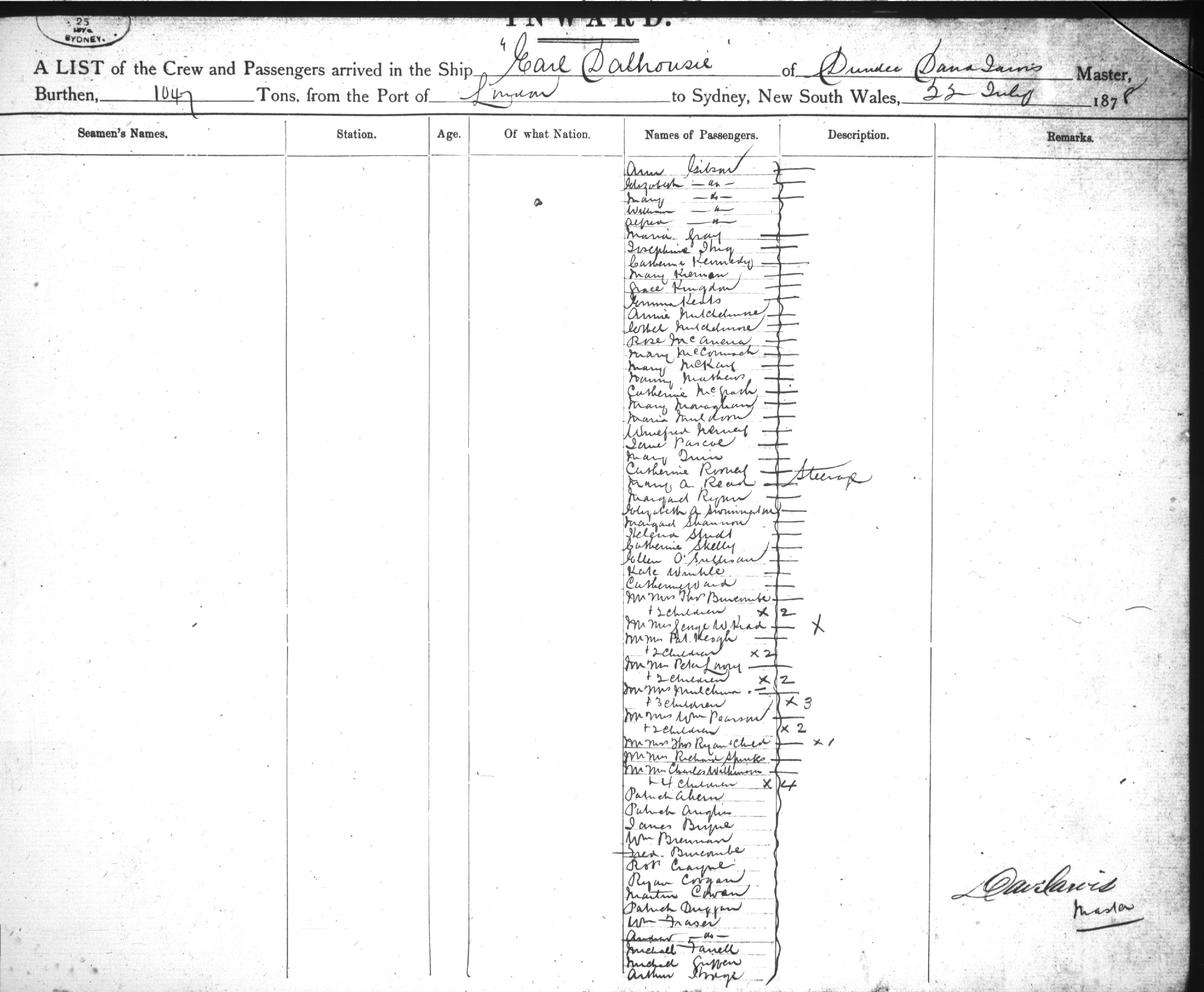 25
SYDNEY.
INWARD.
A LIST of the Crew and Passengers arrived in the Ship "Earl Dalhousie" of Dundee Master,
Burthen, 1047 Tons, from the Port of London to Sydney, New South Wales, 22 July 1878
Seamen's Names. Station. Age. Of what Nation. Names of Passengers. Description. Remarks.
Ann Gibson
Elizabeth — do —
Mary — do —
William — do —
Alfred — do —
Maria Gray
Josephine
Catherine Kennedy
Mary Kiernan
Grace Kingdon
Emma Keats
Annie Mutchelmore
Mutchelmore
Rose McAnena
Mary McCormack
Mary McKay
Fanny Mathews
Catherine McGrath
Mary Monaghan
Maria Muldoon
Winefred
Jane Pascoe
Mary Quin
Catherine Rooney
Mary A. Read Steerage
Margard Ryan
Elizabeth A
Margard Shannon
Helena
Catherine Skelly
Ellen O'Sullivan
Kate
Catherine Ward
Mr Mrs Thos Burcombe
+ 2 children X 2
Mr Mrs George W. X
Mr Mrs Pat. Keogh
+ 2 children X 2
Mr Mrs Peter
+ 2 children X 2
Mr Mrs
+ 3 children X 3
Mr Mrs Wm Pearson
+ 2 children X 2
Mr Mrs Thos Ryan + Child X 1
Mr Mrs Richard Spinks
Mr Mrs Charles Wilkinson
+ 4 children X 4
Patrick Ahern
Patrick Anglin
James Byrne
Wm Brennan
Fred. Burcombe
Robt
Ryan Corgan
Martin Cowan
Patrick Duggan
Wm Fraser
Andrew — do —
Michael Farrell
Michael Griffen
Arthur
Dav Jarvis
Master